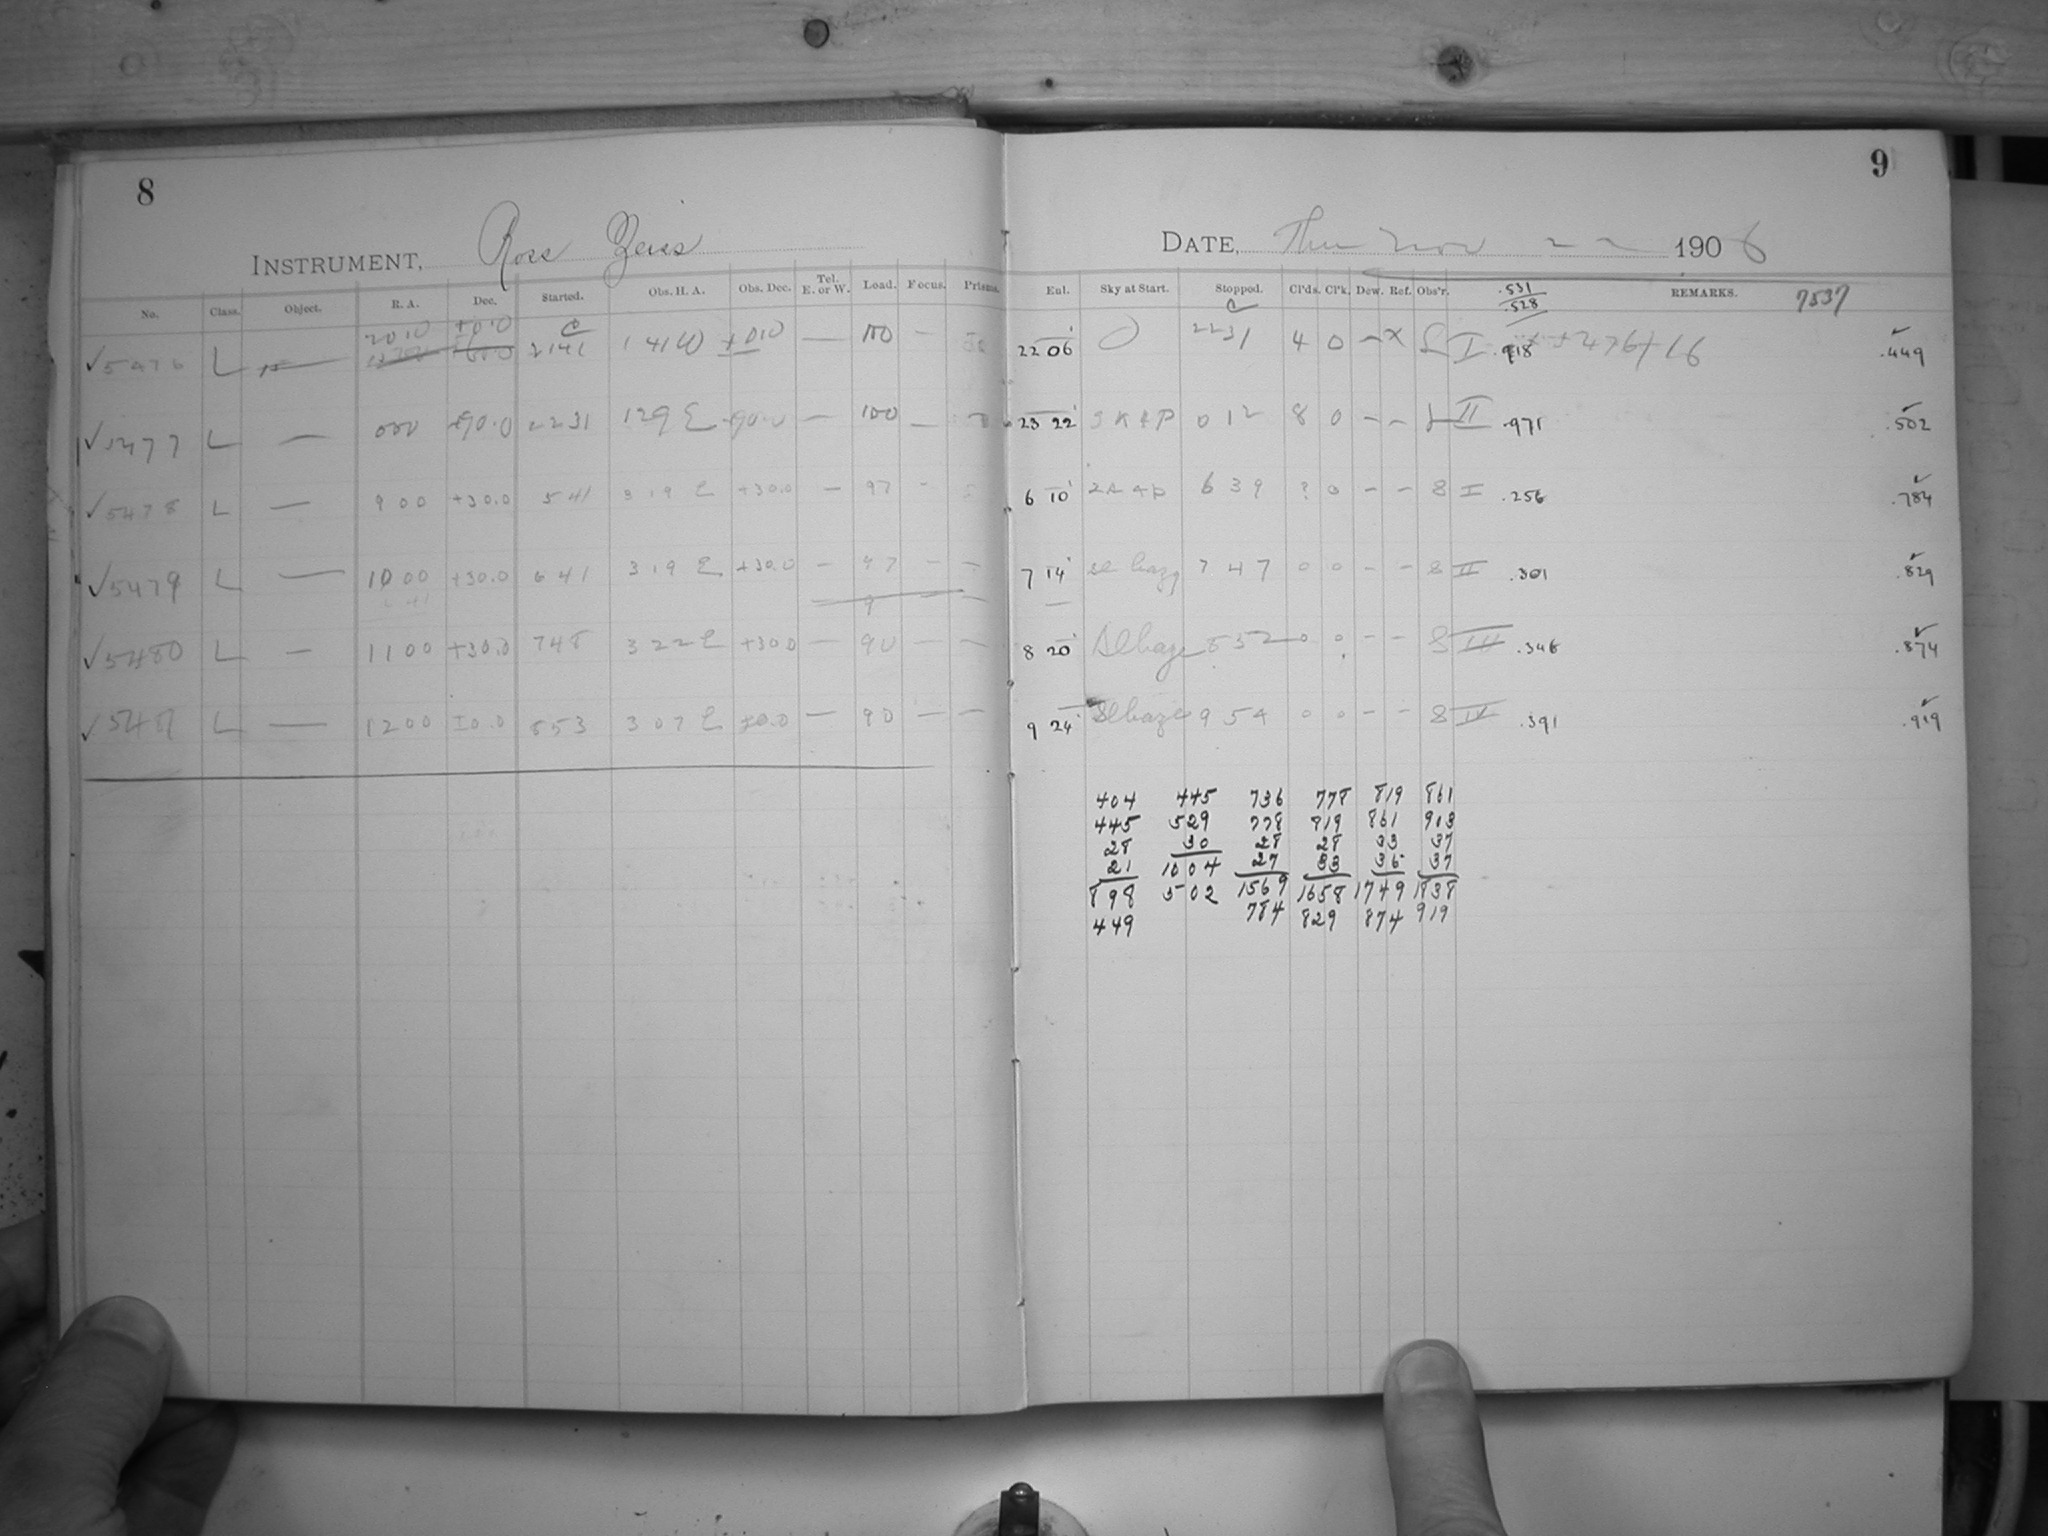 8
INSTRUMENT, Ross Zeiss
No. Class. Object. R. A. Dec. Started. Obs. H. A. Obs. Dec. Tel. E. or W. Load. Focus. Prisms.
✓5476 L — 2010 +0.0 2141 141W +010 — 100 —
✓5477 L — 000 +90.0 2231 129 E +90.0 — 100 —
✓5478 L — 900 +30.0 541 319 E +30.0 — 97 -
✓5479 L — 1000 +30.0 641 319 E +30.0 — 97 — —
✓5480 L — 1100 +30.0 748 322 E +30.0 — 90 — —
✓5481 L — 1200 ±0.0 853 307 E ±0.0 — 90 — —
9
DATE, Thu Nov 22 1906
Eul. Sky at Start. Stopped. Cl'ds. Cl'k. Dew. Ref. Obs'r. .531 REMARKS. 7537
.528
22 06 2231 4 0 - x I .918 .449
23 22 012 8 0 - - II .971 .502
6 10 639 ? 0 - - 8 I .256 .784
7 14 Sl hazy 747 0 0 - - 8 II .301 .829
8 20 Sl haze 852 0 0 - - 8 III .346 .874
9 24 Sl haze 954 0 0 - - 8 IV .391 .919
404 445 736 778 819 861
445 529 778 819 861 913
28 30 28 28 33 37
21 1004 27 33 36 37
898 502 1569 1658 1749 1838
449 784 829 874 919